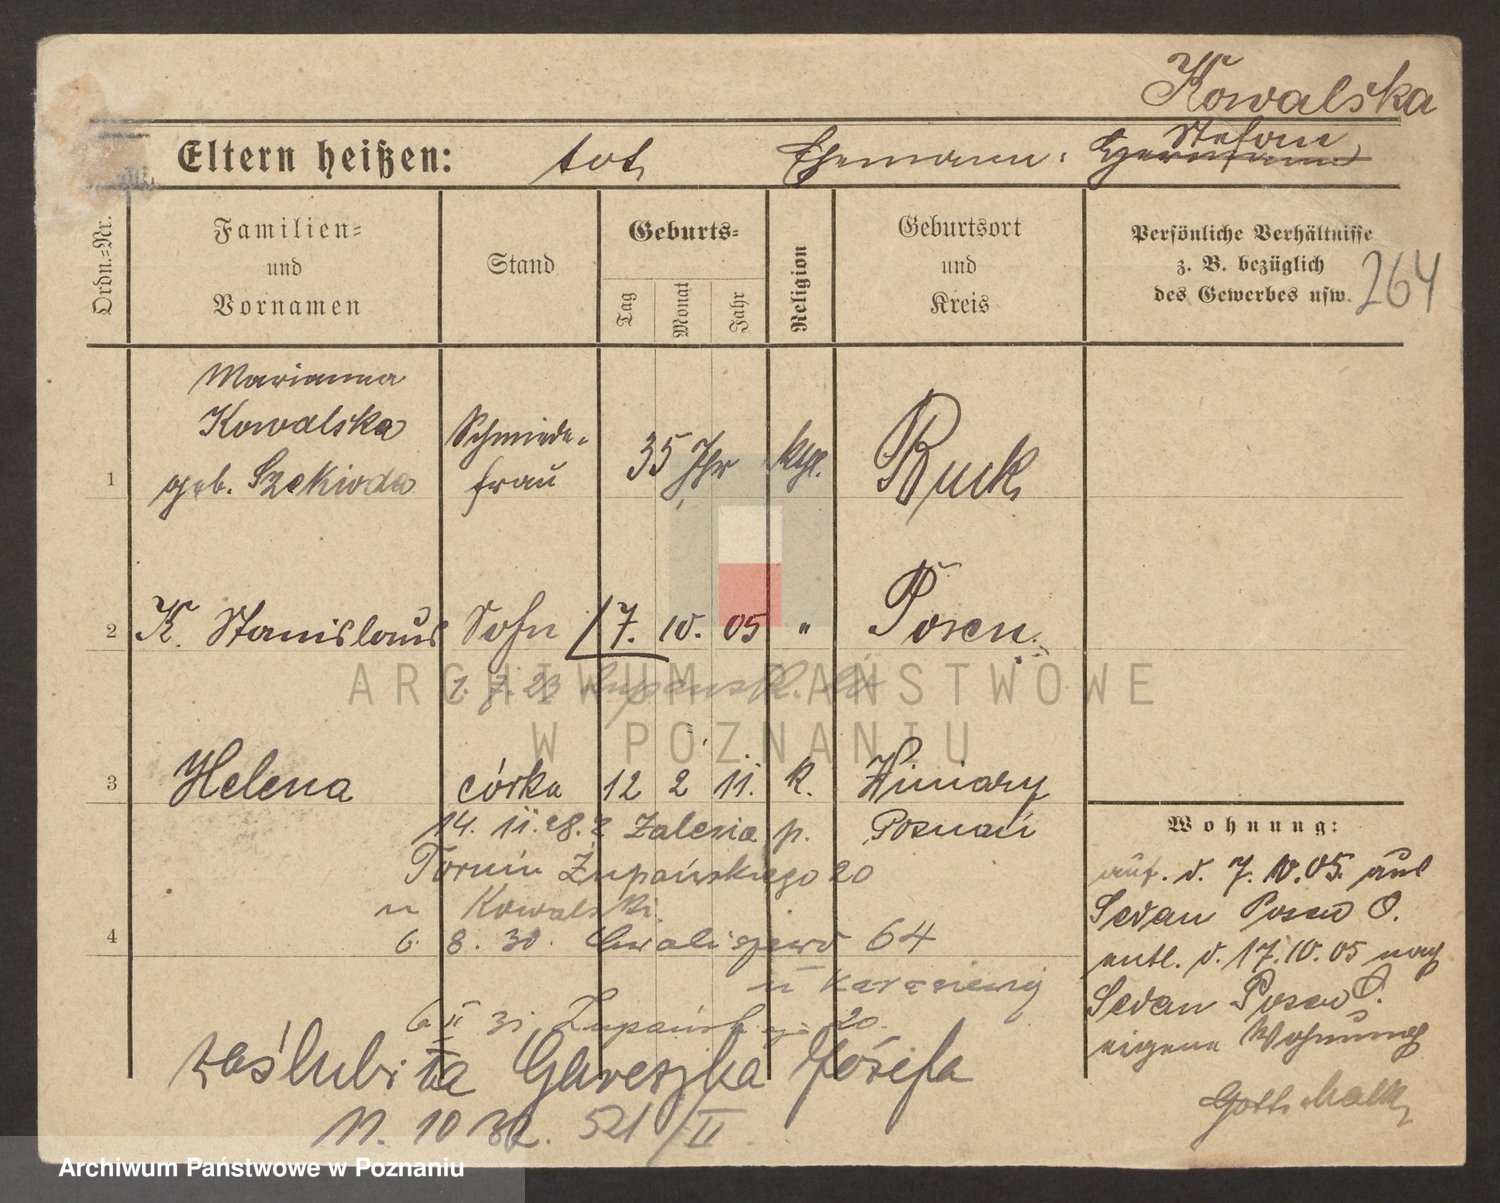 Kowalska
Stefan
Eltern heißen: tot, Ehemann: Hermann
Ordn.=Nr.
Familien=
und
Vornamen
Stand
Geburts=
Tag
Monat
Jahr
Religion
Geburtsort
und
Kreis
Persönliche Verhältnisse
z. B. bezüglich
des Gewerbes usw.
264
Marianna
Kowalska
1 geb. Szekioda
Schmiede-
frau
35 Jhr
kath.
Buck
2 K. Stanislaus Sohn 7. 10. 05 " Posen
1. 7. 23
3 Helena córka 12 2 11. k. Winiary
14. 11. 28. z Zalesia p. Poznań
Żupańskiego 20
u Kowalski.
4
6. 8. 30. Chwaliszewo 64
u
6 II 31 20.
zaślubiła Józefa
11. 10 32. 521/II
Wohnung:
auf. d. 7. 10. 05. aus
Sedan Posen O.
entl. d. 17. 10. 05 nach
Sedan Posen O.
eigene Wohnung
Gottschalk
ARCHIWUM PAŃSTWOWE
W POZNANIU
Archiwum Państwowe w Poznaniu